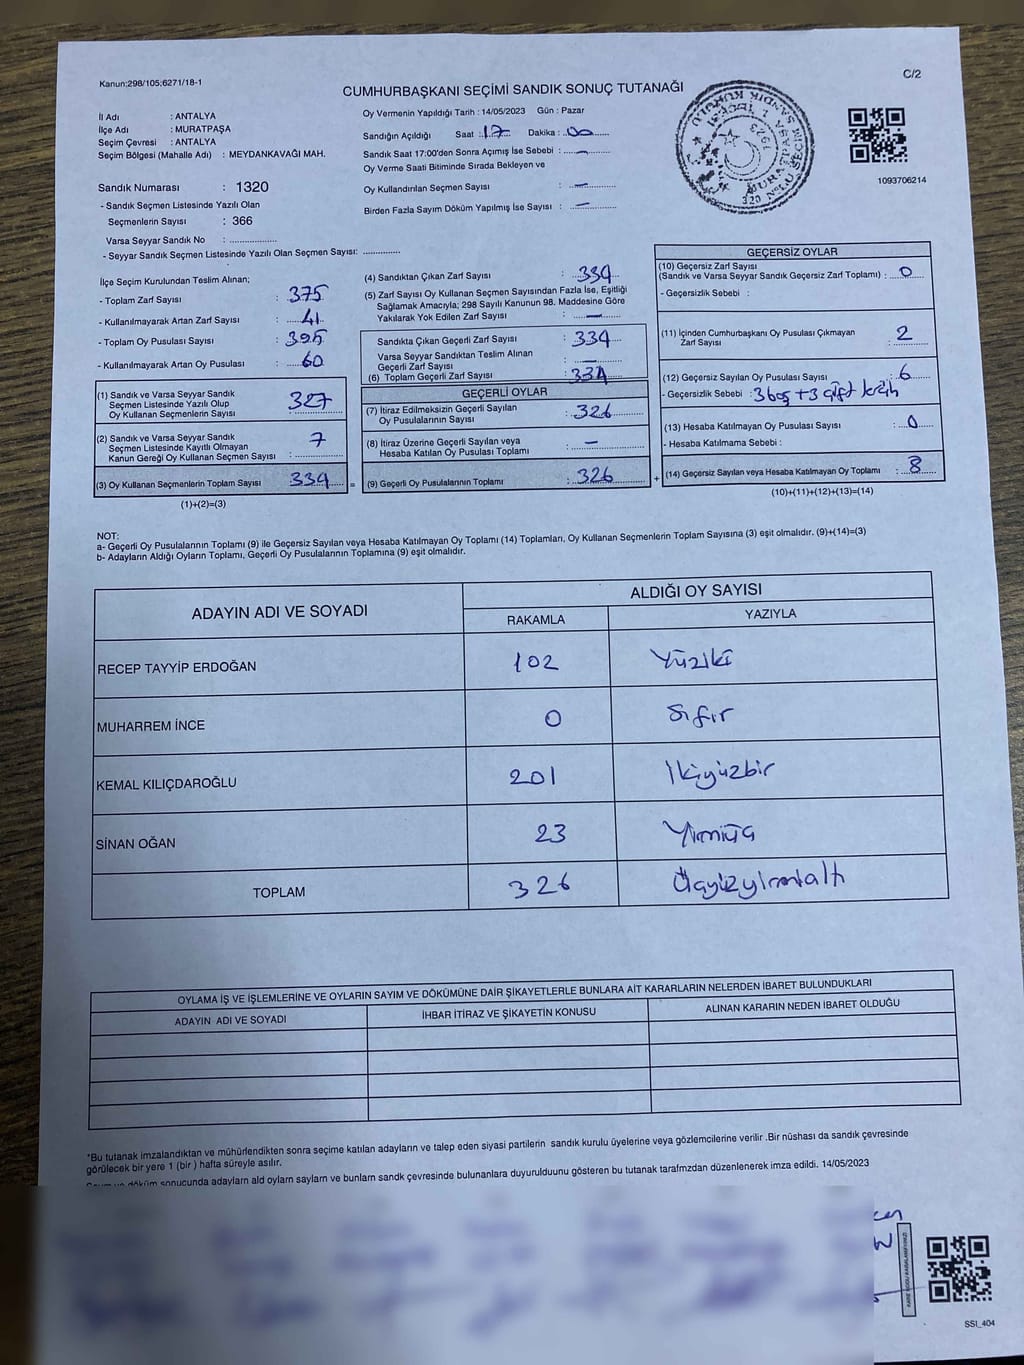 Kanun:298/105;6271/18-1
C/2
CUMHURBAŞKANI SEÇİMİ SANDIK SONUÇ TUTANAĞI
İl Adı : ANTALYA
İlçe Adı : MURATPAŞA
Seçim Çevresi : ANTALYA
Seçim Bölgesi (Mahalle Adı) : MEYDANKAVAĞI MAH.
Sandık Numarası : 1320
- Sandık Seçmen Listesinde Yazılı Olan
Seçmenlerin Sayısı : 366
Varsa Seyyar Sandık No : ................
- Seyyar Sandık Seçmen Listesinde Yazılı Olan Seçmen Sayısı: .............
Oy Vermenin Yapıldığı Tarih : 14/05/2023 Gün : Pazar
Sandığın Açıldığı Saat : 17 Dakika : 00
Sandık Saat 17:00'den Sonra Açımış İse Sebebi : —
Oy Verme Saati Bitiminde Sırada Bekleyen ve
Oy Kullandırılan Seçmen Sayısı : —
Birden Fazla Sayım Döküm Yapılmış İse Sayısı : —
1093706214
İlçe Seçim Kurulundan Teslim Alınan;
- Toplam Zarf Sayısı : 375
- Kullanılmayarak Artan Zarf Sayısı : 41
- Toplam Oy Pusulası Sayısı : 395
- Kullanılmayarak Artan Oy Pusulası : 60
(1) Sandık ve Varsa Seyyar Sandık
Seçmen Listesinde Yazılı Olup
Oy Kullanan Seçmenlerin Sayısı : 327
(2) Sandık ve Varsa Seyyar Sandık
Seçmen Listesinde Kayıtlı Olmayan
Kanun Gereği Oy Kullanan Seçmen Sayısı : 7
(3) Oy Kullanan Seçmenlerin Toplam Sayısı 334 =
(1)+(2)=(3)
(4) Sandıktan Çıkan Zarf Sayısı : 334
(5) Zarf Sayısı Oy Kullanan Seçmen Sayısından Fazla İse, Eşitliği
Sağlamak Amacıyla; 298 Sayılı Kanunun 98. Maddesine Göre
Yakılarak Yok Edilen Zarf Sayısı : —
Sandıkta Çıkan Geçerli Zarf Sayısı : 334
Varsa Seyyar Sandıktan Teslim Alınan
Geçerli Zarf Sayısı : —
(6) Toplam Geçerli Zarf Sayısı : 334
GEÇERLİ OYLAR
(7) İtiraz Edilmeksizin Geçerli Sayılan
Oy Pusulalarının Sayısı : 326
(8) İtiraz Üzerine Geçerli Sayılan veya
Hesaba Katılan Oy Pusulası Toplamı : —
(9) Geçerli Oy Pusulalarının Toplamı : 326 +
GEÇERSİZ OYLAR
(10) Geçersiz Zarf Sayısı
(Sandık ve Varsa Seyyar Sandık Geçersiz Zarf Toplamı) : 0
- Geçersizlik Sebebi :
(11) İçinden Cumhurbaşkanı Oy Pusulası Çıkmayan
Zarf Sayısı : 2
(12) Geçersiz Sayılan Oy Pusulası Sayısı : 6
- Geçersizlik Sebebi : 3 boş + 3 çift
(13) Hesaba Katılmayan Oy Pusulası Sayısı : 0
- Hesaba Katılmama Sebebi :
(14) Geçersiz Sayılan veya Hesaba Katılmayan Oy Toplamı : 8
(10)+(11)+(12)+(13)=(14)
NOT:
a- Geçerli Oy Pusulalarının Toplamı (9) ile Geçersiz Sayılan veya Hesaba Katılmayan Oy Toplamı (14) Toplamları, Oy Kullanan Seçmenlerin Toplam Sayısına (3) eşit olmalıdır. (9)+(14)=(3)
b- Adayların Aldığı Oyların Toplamı, Geçerli Oy Pusulalarının Toplamına (9) eşit olmalıdır.
ADAYIN ADI VE SOYADI ALDIĞI OY SAYISI
RAKAMLA YAZIYLA
RECEP TAYYİP ERDOĞAN 102 Yüziki
MUHARREM İNCE 0 Sıfır
KEMAL KILIÇDAROĞLU 201 İkiyüzbir
SİNAN OĞAN 23 Yirmiüç
TOPLAM 326 Üçyüzyirmialtı
OYLAMA İŞ VE İŞLEMLERİNE VE OYLARIN SAYIM VE DÖKÜMÜNE DAİR ŞİKAYETLERLE BUNLARA AİT KARARLARIN NELERDEN İBARET BULUNDUKLARI
ADAYIN ADI VE SOYADI İHBAR İTİRAZ VE ŞİKAYETİN KONUSU ALINAN KARARIN NEDEN İBARET OLDUĞU
*Bu tutanak imzalandıktan ve mühürlendikten sonra seçime katılan adayların ve talep eden siyasi partilerin sandık kurulu üyelerine veya gözlemcilerine verilir .Bir nüshası da sandık çevresinde
görülecek bir yere 1 (bir ) hafta süreyle asılır.
döküm sonucunda adayların ald oyların sayların ve bunların sandk çevresinde bulunanlara duyurulduunu gösteren bu tutanak tarafmzdan düzenlenerek imza edildi. 14/05/2023
SSI_404